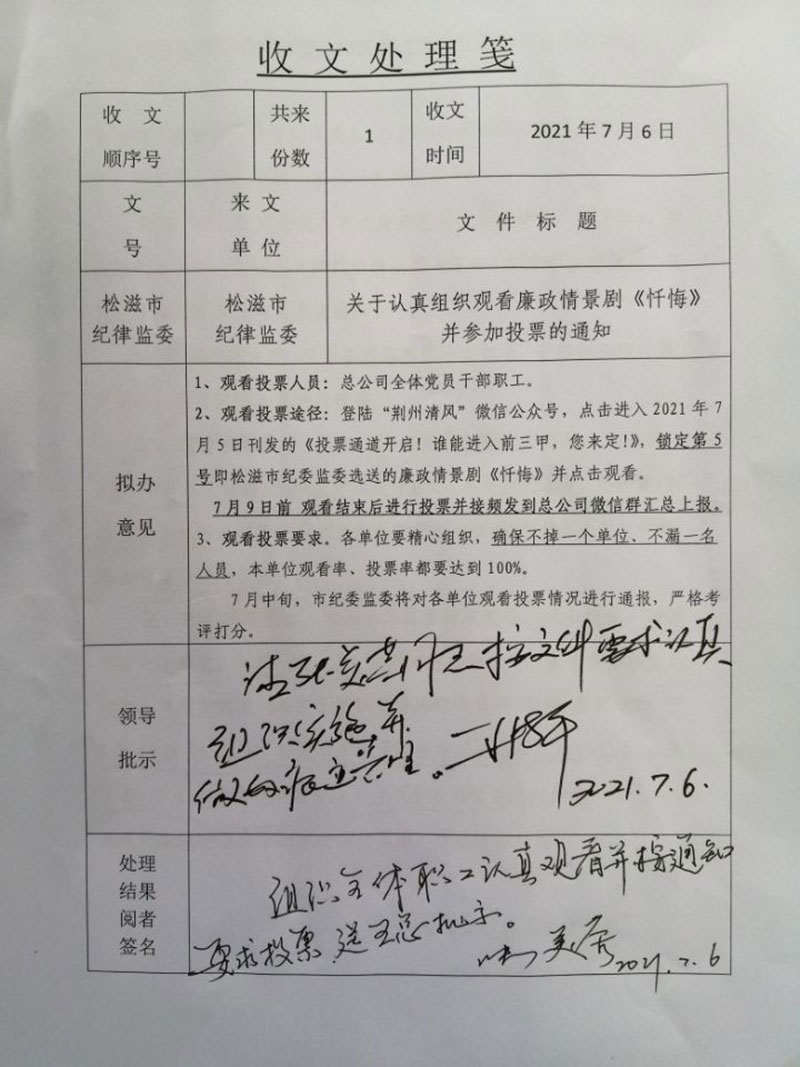 收文处理笺
收 文 共来 收文
顺序号 份数 1 时间 2021年7月6日
文 来 文 文 件 标 题
号 单 位
松滋市 松滋市 关于认真组织观看廉政情景剧《忏悔》
纪律监委 纪律监委 并参加投票的通知
1、观看投票人员：总公司全体党员干部职工。
2、观看投票途径：登陆“荆州清风”微信公众号，点击进入2021年7
月5日刊发的《投票通道开启！谁能进入前三甲，您来定！》，锁定第5
号即松滋市纪委监委选送的廉政情景剧《忏悔》并点击观看。
拟办
7月9日前 观看结束后进行投票并接频发到总公司微信群汇总上报。
意见
3、观看投票要求。各单位要精心组织，确保不掉一个单位、不漏一名
人员，本单位观看率、投票率都要达到100%。
7月中旬，市纪委监委将对各单位观看投票情况进行通报，严格考
评打分。
领导
批示
按文件要求认真
组织实施并
2021.7.6.
处理
结果
阅者
签名
组织全体职工认真观看并按通知
要求投票 送王总批示。
2021.7.6